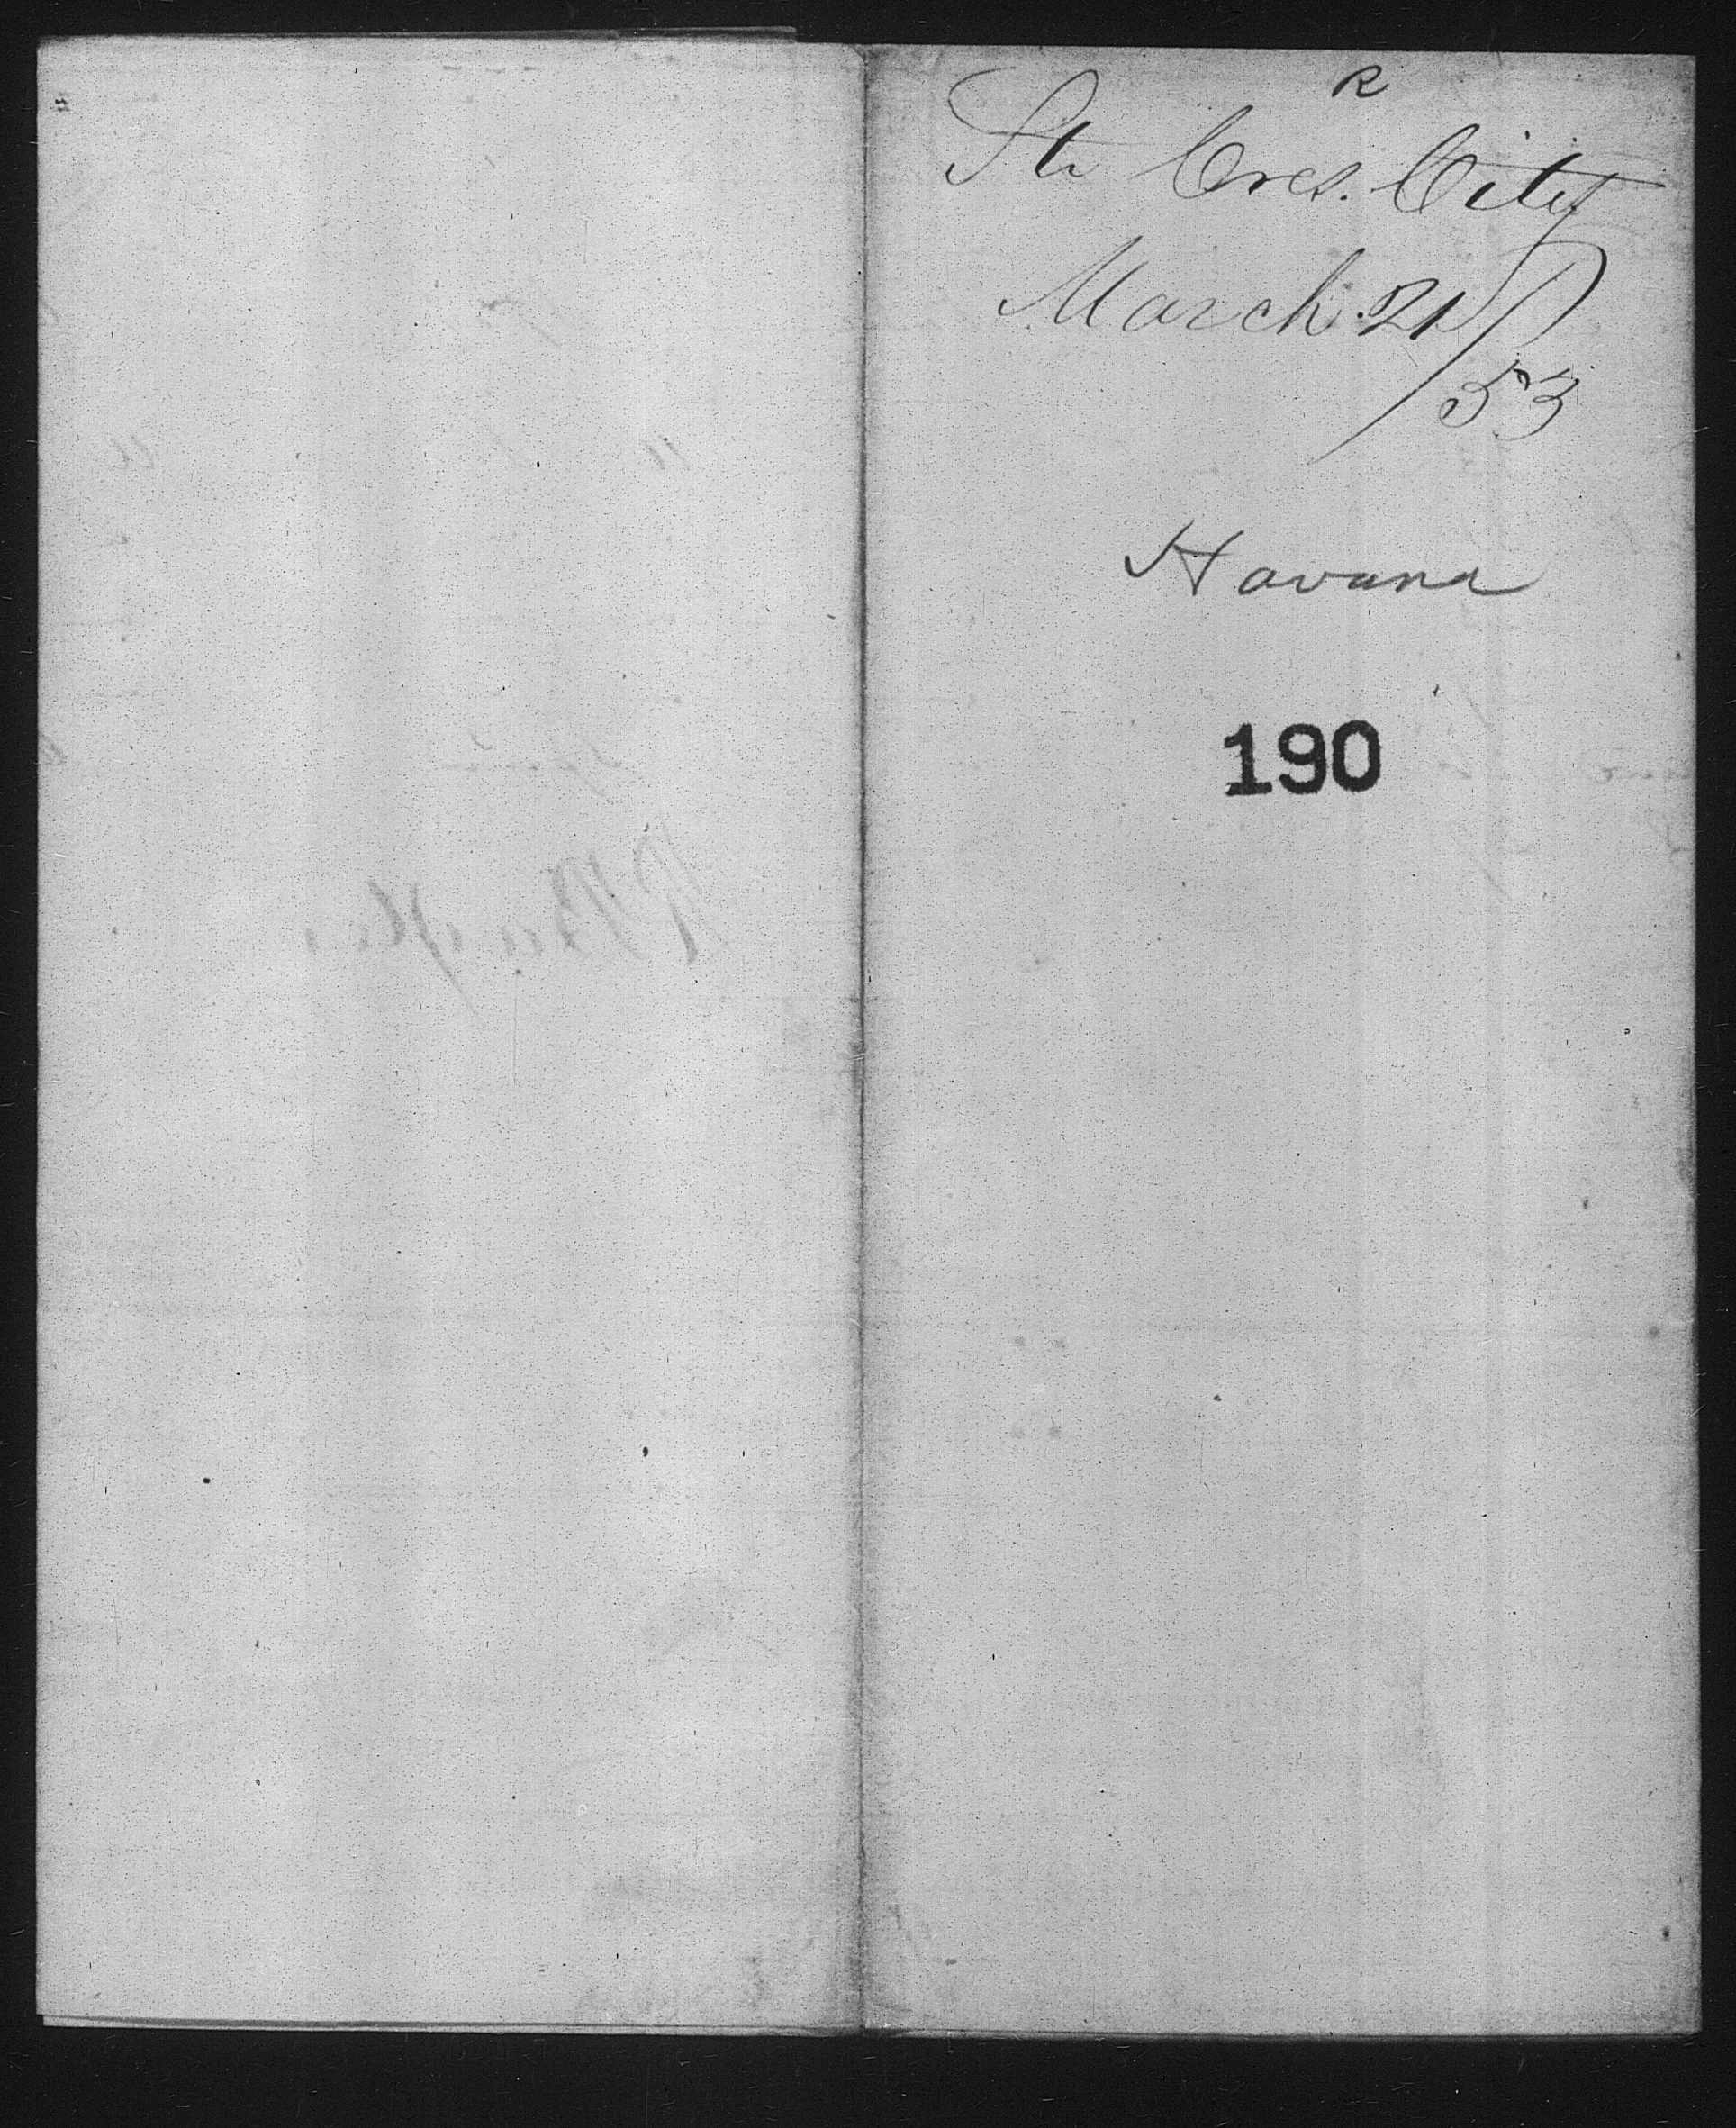 R
Str Cres. City
March 21
/53
Havana
190